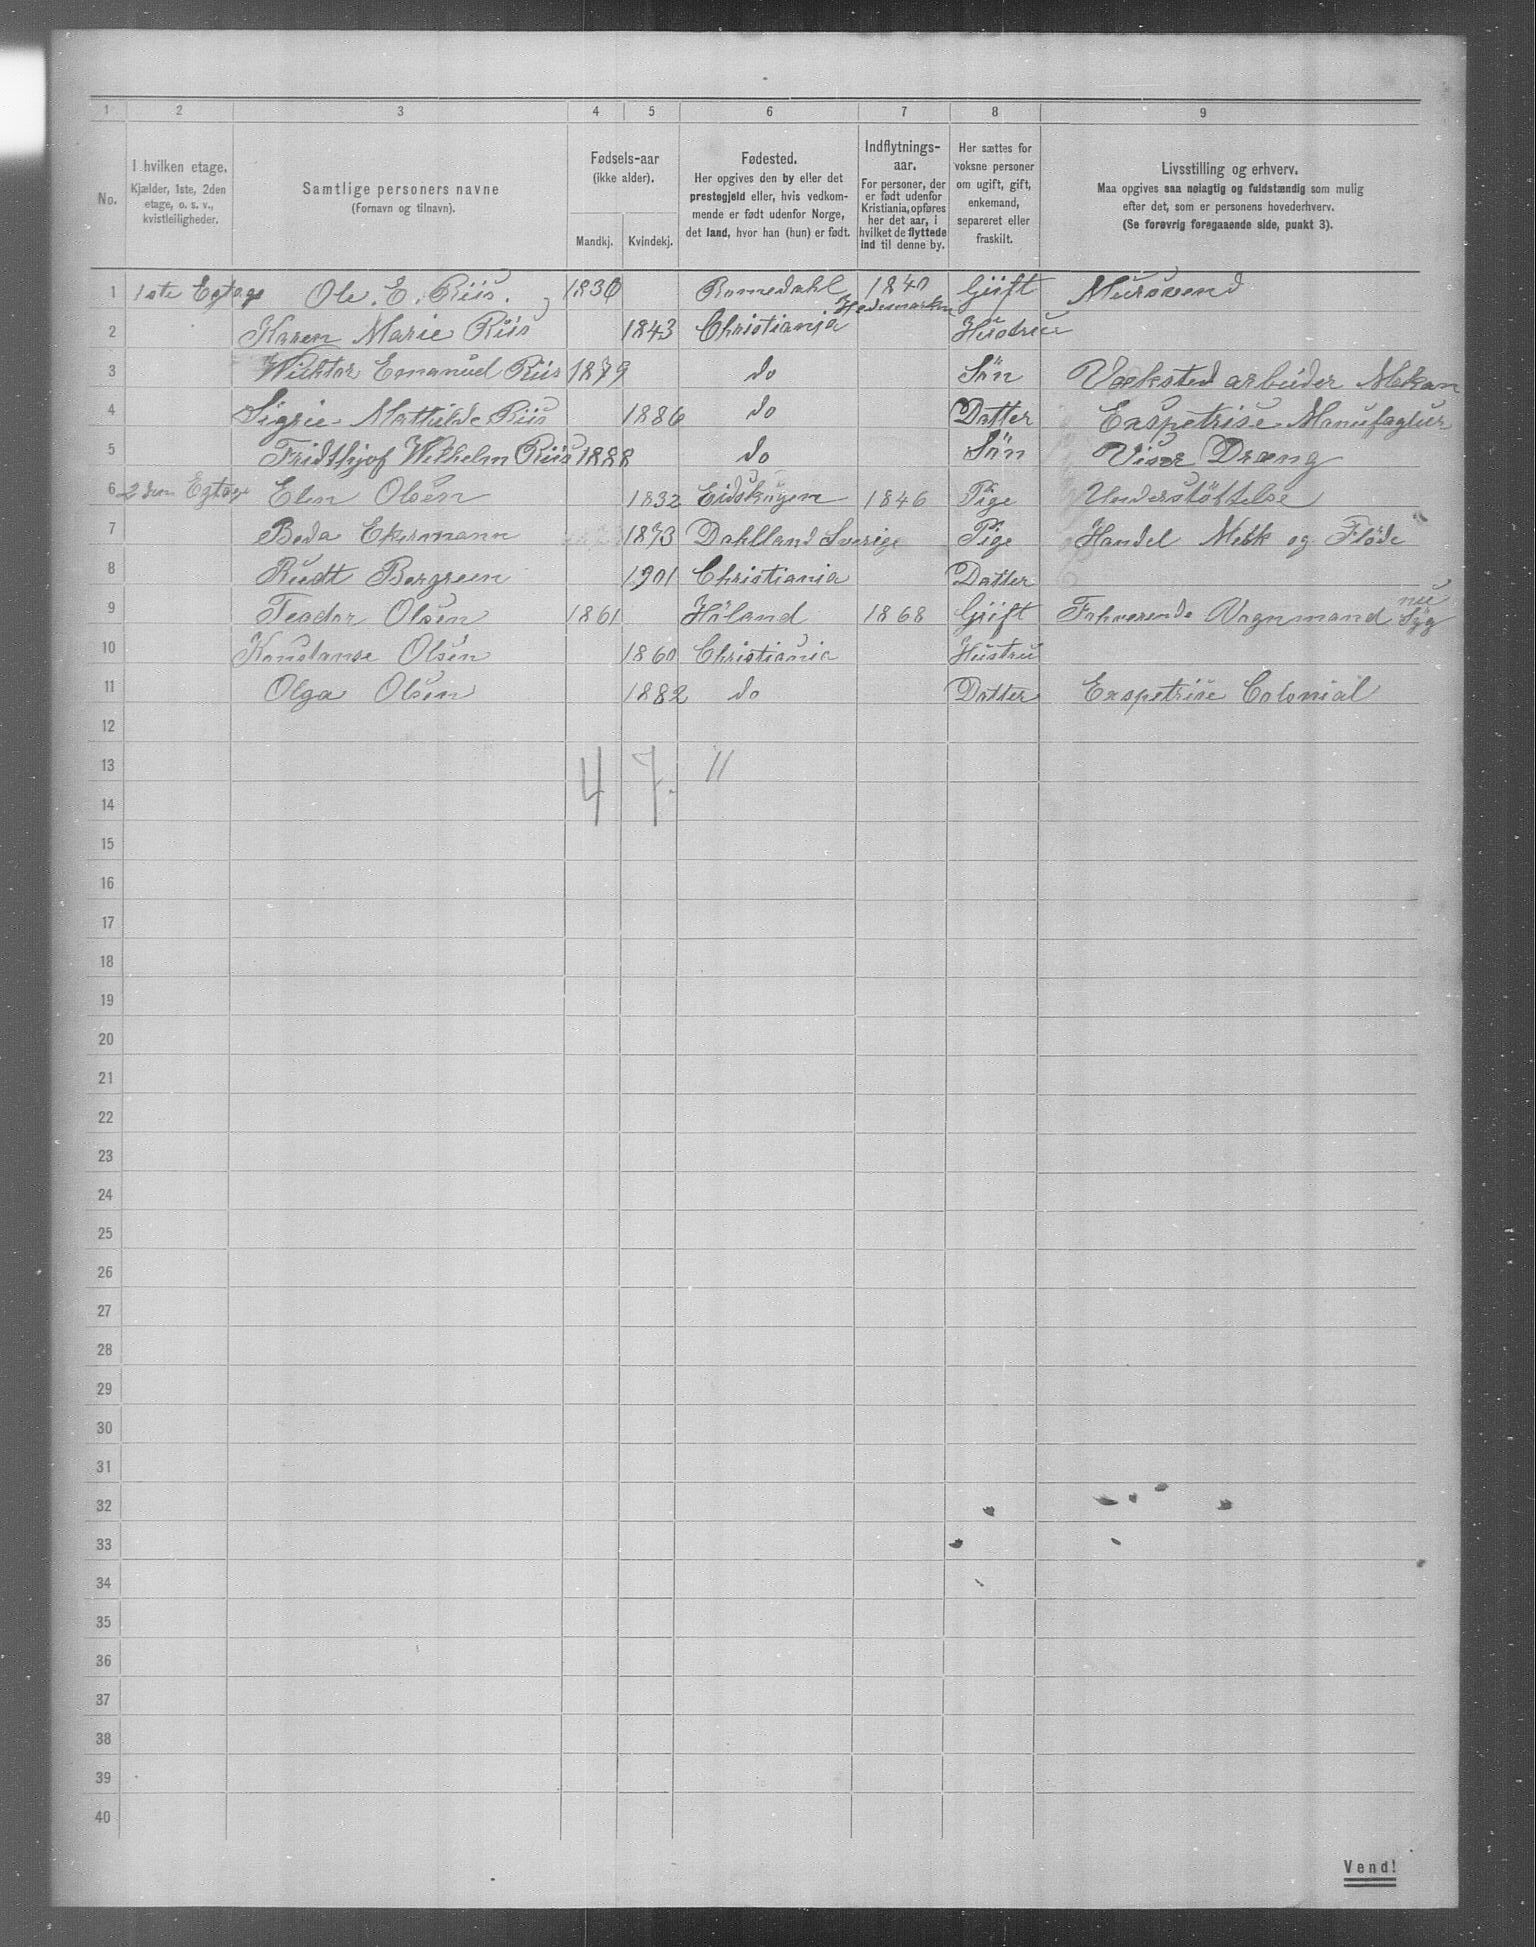 1 2 3 4 5 6 7 8 9
No.
I hvilken etage.
Kjælder, 1ste, 2den
etage, o. s. v.,
kvistleiligheder.
Samtlige personers navne
(Fornavn og tilnavn).
Fødsels-aar
(ikke alder).
Mandkj. Kvindekj.
Fødested.
Her opgives den by eller det
prestegjeld eller, hvis vedkom-
mende er født udenfor Norge,
det land, hvor han (hun) er født.
Indflytnings-
aar.
For personer, der
er født udenfor
Kristiania, opføres
her det aar, i
hvilket de flyttede
ind til denne by.
Her sættes for
voksne personer
om ugift, gift,
enkemand,
separeret eller
fraskilt.
Livsstilling og erhverv.
Maa opgives saa nøiagtig og fuldstændig som mulig
efter det, som er personens hovederhverv.
(Se forøvrig foregaaende side, punkt 3).
1 1ste Egtage Ole. E. Riis. 1830 Romedahl Hedemarken 1840 Gift Mursvend
2 Karen Marie Riis 1843 Christiania Hustru
3 Wicktor Emanuel Riis 1879 do Sön Værksted arbeider Mekan
4 Sigrie Mathilde Riis 1886 do Datter Exspetrise Manufagtur
5 Fridthjof Wilhelm Riis 1888 do Sön Viser Dræng
6 2den Egtage Elen Olsen 1832 Eidskogen 1846 Pige Understöttelse
7 Beda Ekermann 1873 Dahlland Sverige Pige Handel Melk og Flöde
8 Rudt Bergreen 1901 Christiania Datter
9 Teodor Olsen 1861 Höland 1868 Gift Forhverende Vognmand nu Syg
10 Konstanse Olsen 1860 Christiania Hustru
11 Olga Olsen 1882 do Datter Exspetrise Colonial
12
13 4 7. 11
14
15
16
17
18
19
20
21
22
23
24
25
26
27
28
29
30
31
32
33
34
35
36
37
38
39
40
Vend!